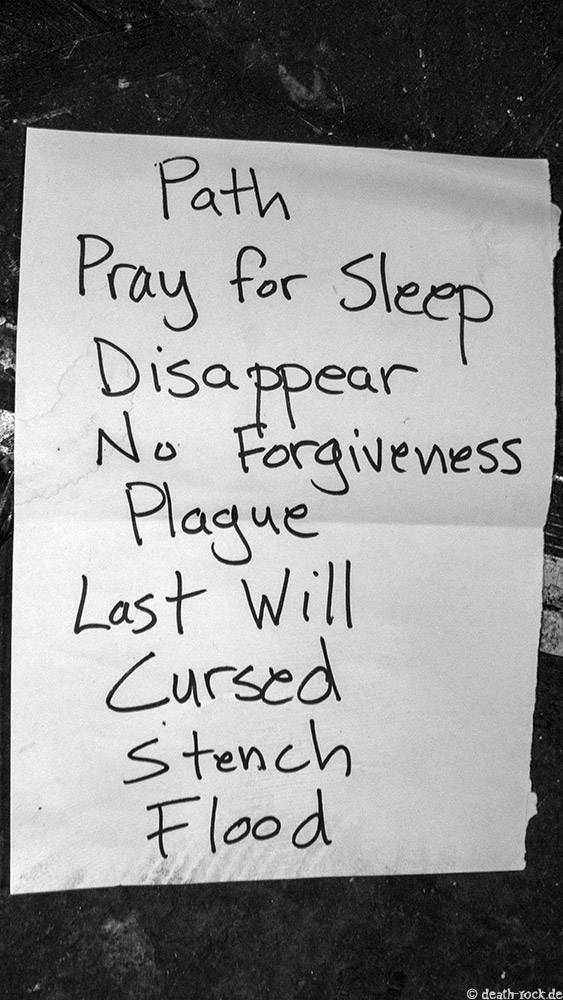 Path
Pray for Sleep
Disappear
No Forgiveness
Plague
Last Will
Cursed
Stench
Flood
© death-rock.de